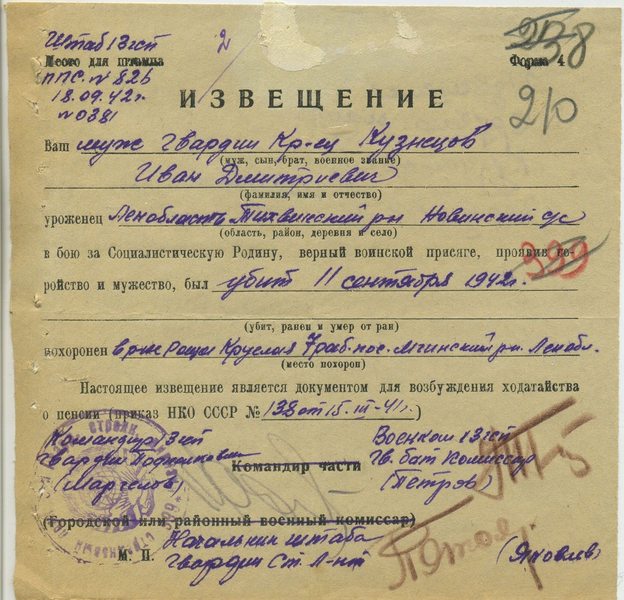 Штаб 13 гсп
2
238
Место для штампа
Форма 4
ППС. № 826
18.09.42 г.
№ 0381
ИЗВЕЩЕНИЕ
210
Ваш муж гвардии Кр-ец Кузнецов
(муж, сын, брат, военное звание)
Иван Дмитриевич
(фамилия, имя и отчество)
уроженец Ленобласть Тихвинский рн Новинский с/с
(область, район, деревня и село)
в бою за Социалистическую Родину, верный воинской присяге, проявив ге-
ройство и мужество, был убит 11 сентября 1942 г.
(убит, ранен и умер от ран)
похоронен в р-не Рощи Круглая Мгинский рн. Ленобл.
(место похорон)
Настоящее извещение является документом для возбуждения ходатайства
о пенсии (приказ НКО СССР № 138 от 15.III-41 г.)
Командир 13 гсп
Военком 13 гсп
гвардии Подполковник
Командир части
гв. бат. Комиссар
(Маргелов)
(Петров)
(Городской или районный военный комиссар)
Начальник штаба
М. П.
гвардии Ст. Л-нт
(Яковлев)